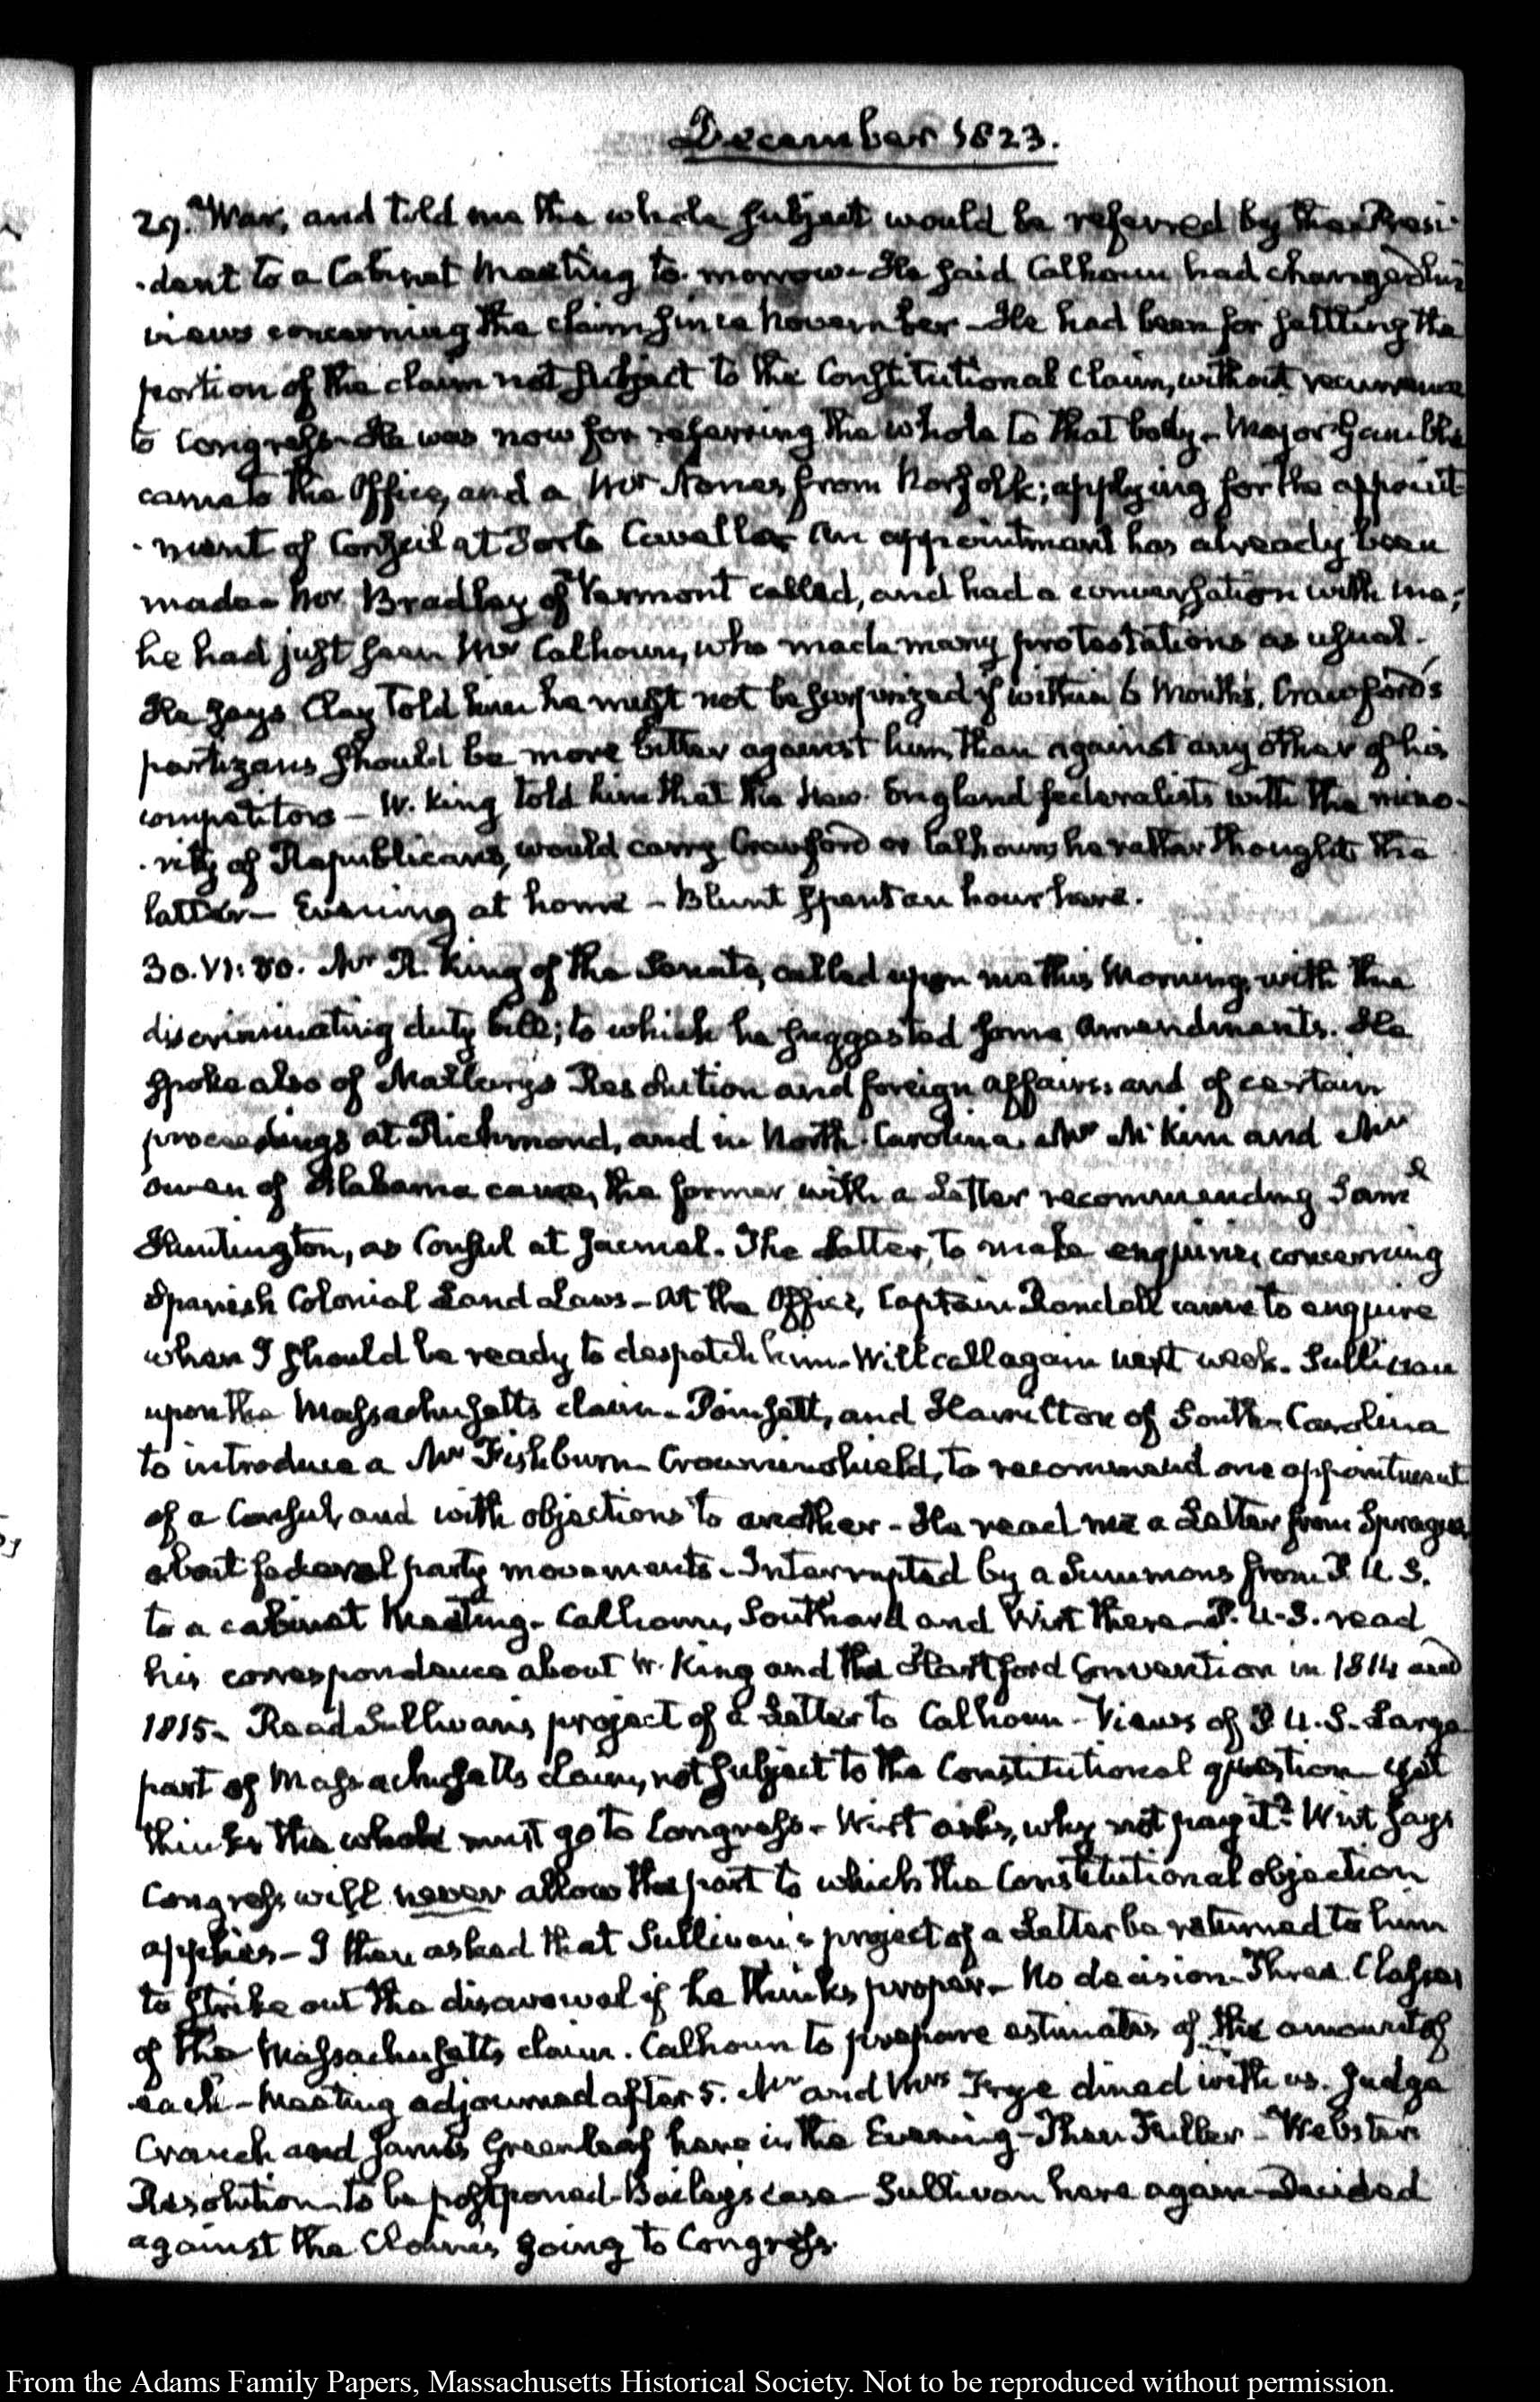 December 1823.
29. War, and told me the whole subject would be referred by the Presi-
-dent to a Cabinet Meeting to-morrow. He said Calhoun had changed his
views concerning the claim since November. He had been for settling the
portion of the claim not subject to the Constitutional claim, without recurrence
to Congress. He was now for referring the whole to that body. Major Gamble
came to the Office, and a Mr Nones from Norfolk; applying for the appoint-
-ment of Consul at Porto Cavello. An appointment has already been
made. Mr Bradley of Vermont called, and had a conversation with me;
he had just seen Mr Calhoun, who made many protestations as usual.
He says Clay told him he must not be surprized if within 6 Months, Crawford's
partizans should be more bitter against him, than against any other of his
competitors — W. King told him that the New-England federalists with the mino-
-rity of Republicans, would carry Crawford or Calhoun, he rather thought the
latter — Evening at home — Blunt spent an hour here.
30. VI:30. Mr R. King of the Senate, called upon me this Morning, with the
discriminating duty bill; to which he suggested some Amendments. He
spoke also of Mallary's Resolution and foreign affairs: and of certain
proceedings at Richmond, and in North-Carolina. Mr McKim and Mr
Owen of Alabama came, the former with a Letter recommending Saml
Huntington, as Consul at Jacmel. The Latter, to make enquiries concerning
Spanish Colonial Land Laws — At the Office, Captain Randall came to enquire
when I should be ready to despatch him. Will call again next week. Sullivan
upon the Massachusetts claim. Poinsett, and Hamilton of South-Carolina
to introduce a Mr Fishburn. Crowninshield, to recommend one appointment
of a Consul, and with objections to another — He read me a Letter from Sprague
about federal party movements. Interrupted by a Summons from P. U. S.
to a cabinet Meeting. Calhoun, Southard and Wirt there — P. U. S. read
his correspondence about W. King and the Hartford Convention in 1814 and
1815. Read Sullivan's project of a Letter to Calhoun — Views of P. U. S. Large
part of Massachusetts claim, not subject to the Constitutional question — yet
thinks the whole must go to Congress — Wirt asks, why not pay it? Wirt says
Congress will never allow the part to which the Constitutional objection
applies — I then asked that Sullivan's project of a Letter be returned to him
to strike out the disavowal if he thinks proper. No decision. Three Classes
of the Massachusetts claim. Calhoun to prepare estimates of the amount of
each — Meeting adjourned after 5. Mr and Mrs Frye dined with us. Judge
Cranch and James Greenleaf here in the Evening — Then Fuller — Webster's
Resolution to be postponed — Bailey's case — Sullivan here again — Decided
against the Claim's going to Congress.
From the Adams Family Papers, Massachusetts Historical Society. Not to be reproduced without permission.